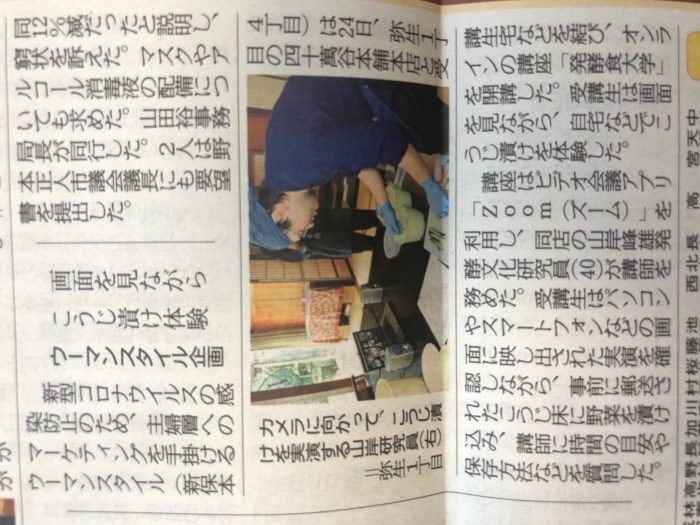 同12%減だったと説明し、
窮状を訴えた。マスクやア
ルコール消毒液の配備につ
いても求めた。山田裕事務
局長が同行した。2人は野
本正人市議会議長にも要望
書を提出した。
画面を見ながら
こうじ漬け体験
ウーマンスタイル企画
新型コロナウイルスの感
染防止のため、主婦層への
マーケティングを手掛ける
ウーマンスタイル(新保本
4丁目)は24日、弥生1丁
目の四十萬谷本舗本店と受
カメラに向かって、こうじ漬
けを実演する山岸研究員(右)
=弥生1丁目
講生宅などを結び、オンラ
インの講座「発酵食大学」
を開講した。受講生は画面
を見ながら、自宅などでこ
うじ漬けを体験した。
講座はビデオ会議アプリ
「Zoom(ズーム)」を
利用し、同店の山岸峰雄発
酵文化研究員(40)が講師を
務めた。受講生はパソコン
やスマートフォンなどの画
面に映し出された実演を確
認しながら、事前に郵送さ
れたこうじ床に野菜を漬け
込み、講師に時間の目安や
保存方法などを質問した。